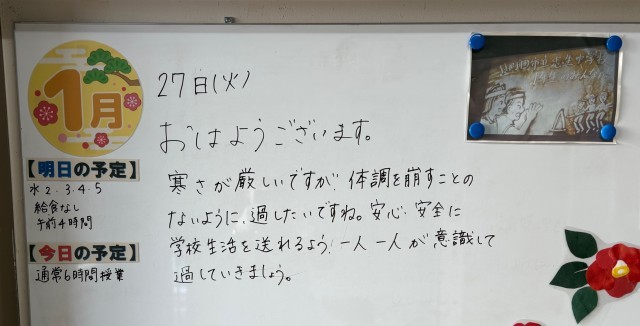 1月
27日(火)
おはようございます。
寒さが厳しいですが、体調を崩すことの
ないように、過したいですね。安心・安全に
学校生活を送れるよう、一人一人が意識して
過していきましょう。
【明日の予定】
水2.3.4.5
給食なし
午前4時間
【今日の予定】
通常6時間授業